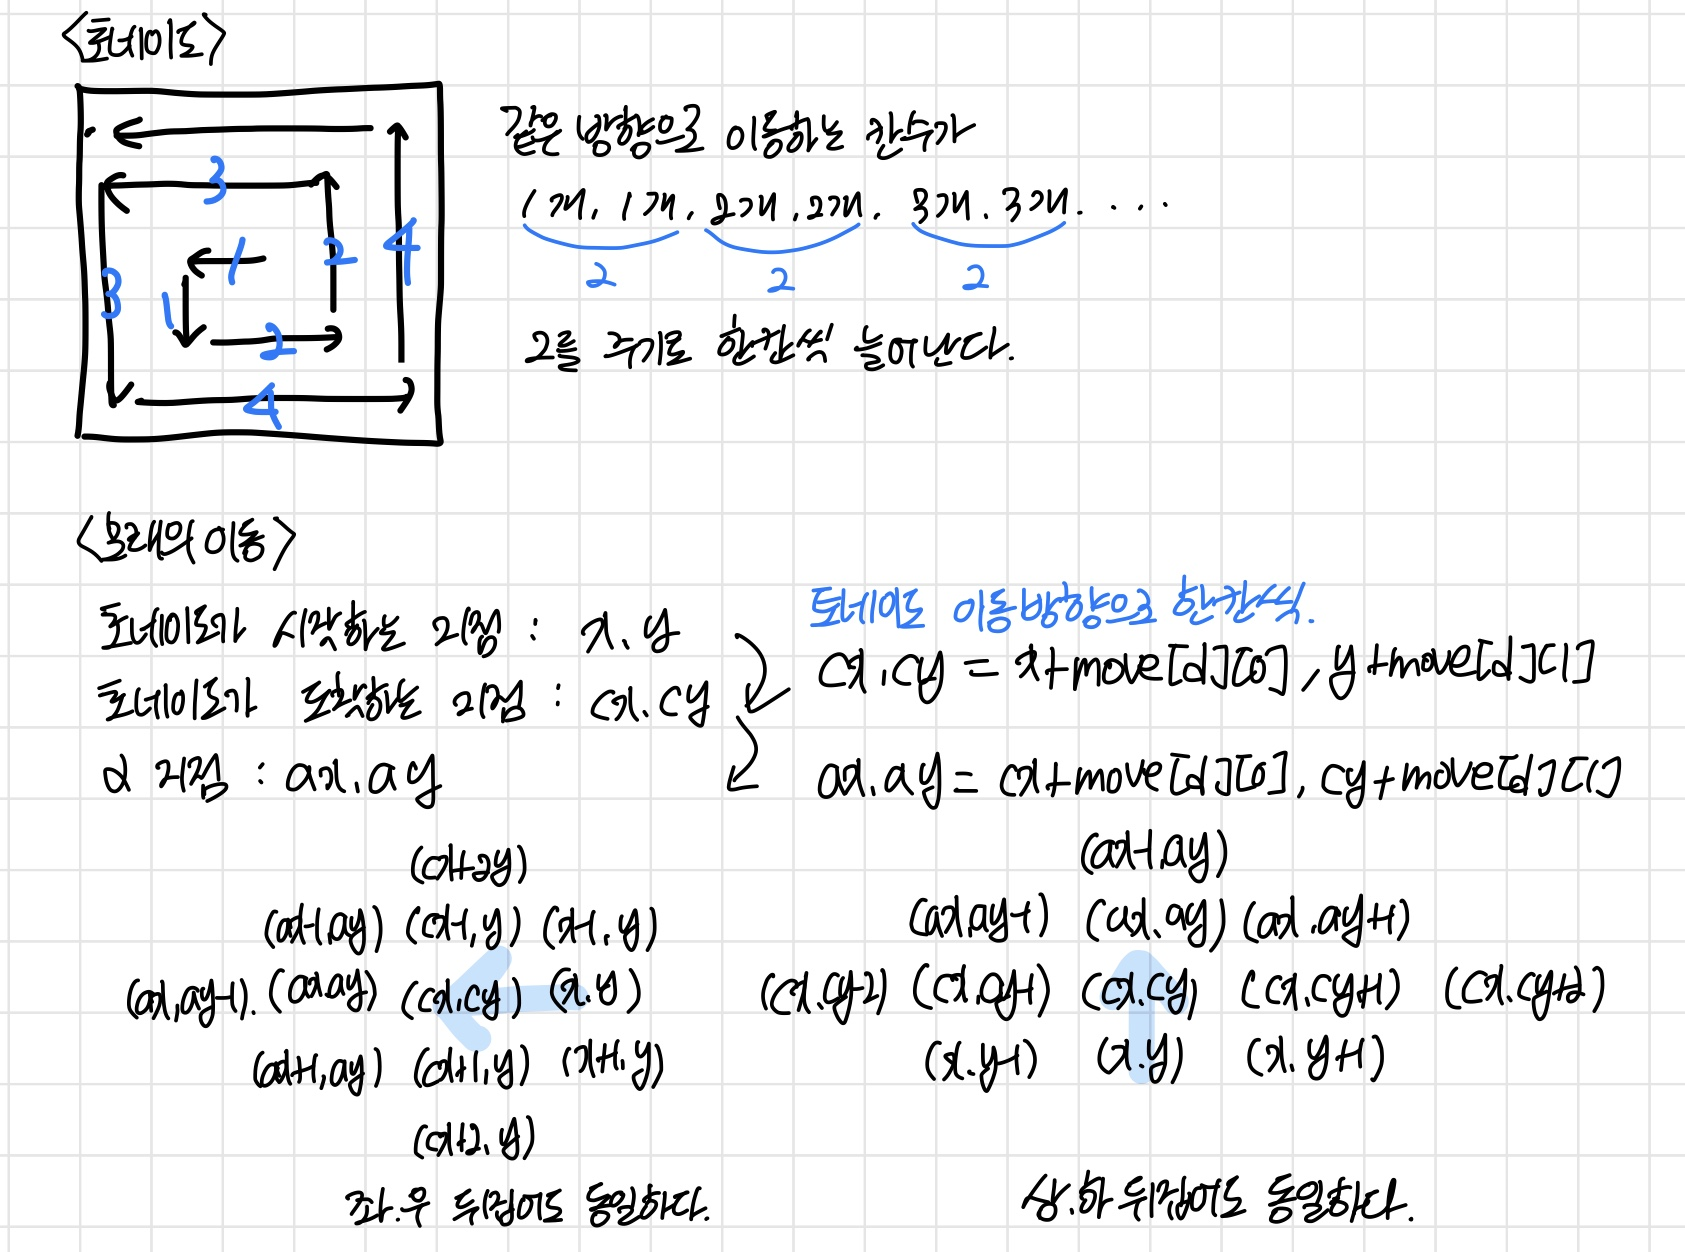 <토네이도>
3
1
2
4
3
1
2
4
같은 방향으로 이동하는 칸수가
1개, 1개, 2개, 2개, 3개, 3개. ....
2 2 2
2를 주기로 한칸씩 늘어난다.
<모래의 이동>
토네이도가 시작하는 지점 : x, y
토네이도가 도착하는 지점 : cx, cy
α 지점 : ax, ay
토네이도 이동방향으로 한칸씩.
cx, cy = x+move[d][0], y+move[d][1]
ax, ay = cx+move[d][0], cy+move[d][1]
(ax-1,ay) (cx-1,y) (x-1, y)
(ax,ay-1). (ax.ay) (cx,cy) (x.y)
(ax+1,ay) (cx+1,y) (x+1, y)
(cx+2, y)
좌.우 뒤집어도 동일하다.
(ax-1,ay)
(ax,ay-1) (ax.ay) (ax.ay+1)
(cx.cy-2) (cx,cy-1) (cx.cy) (cx.cy+1) (cx.cy+2)
(x.y-1) (x.y) (x. y+1)
상.하 뒤집어도 동일하다.